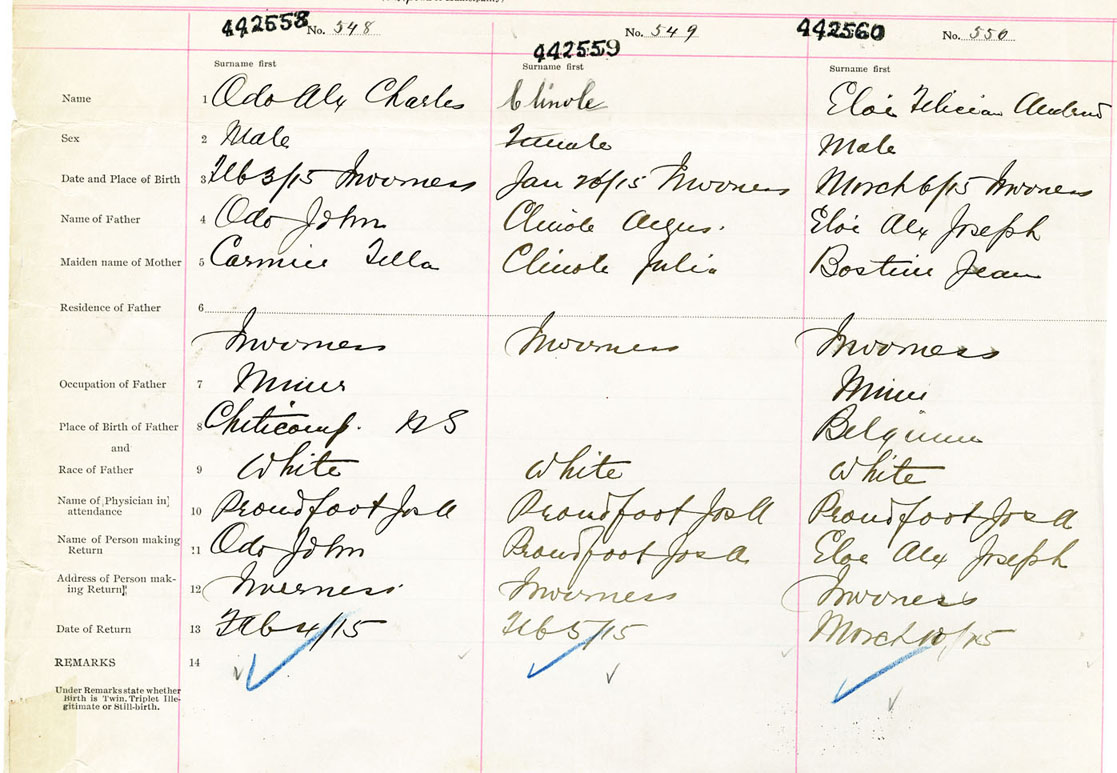 442558 No. 548 442559 No. 549 442560 No. 550
Surname first Surname first Surname first
Name 1 Odo Alex Charles Clinole Eloi Felician
Sex 2 Male Female Male
Date and Place of Birth 3 Feb 3/15 Inverness Jan 26/15 Inverness March 6/15 Inverness
Name of Father 4 Odo John Clinole Angus. Eloi Alex Joseph
Maiden name of Mother 5 Tella Clinole Julia Jean
Residence of Father 6
Inverness Inverness Inverness
Occupation of Father 7 Miner Miner
Place of Birth of Father 8 Cheticamp. N S Belgium
and
Race of Father 9 White White White
Name of Physician in] attendance 10 Proudfoot Jos A Proudfoot Jos A Proudfoot Jos A
Name of Person making Return 11 Odo John Proudfoot Jos A Eloi Alex Joseph
Address of Person mak-
ing Return] 12 Inverness Inverness Inverness
Date of Return 13 Feb 4/15 Feb 5/15 March 10/15
REMARKS 14
Under Remarks state whether
Birth is Twin, Triplet Ille-
gitimate or Still-birth.